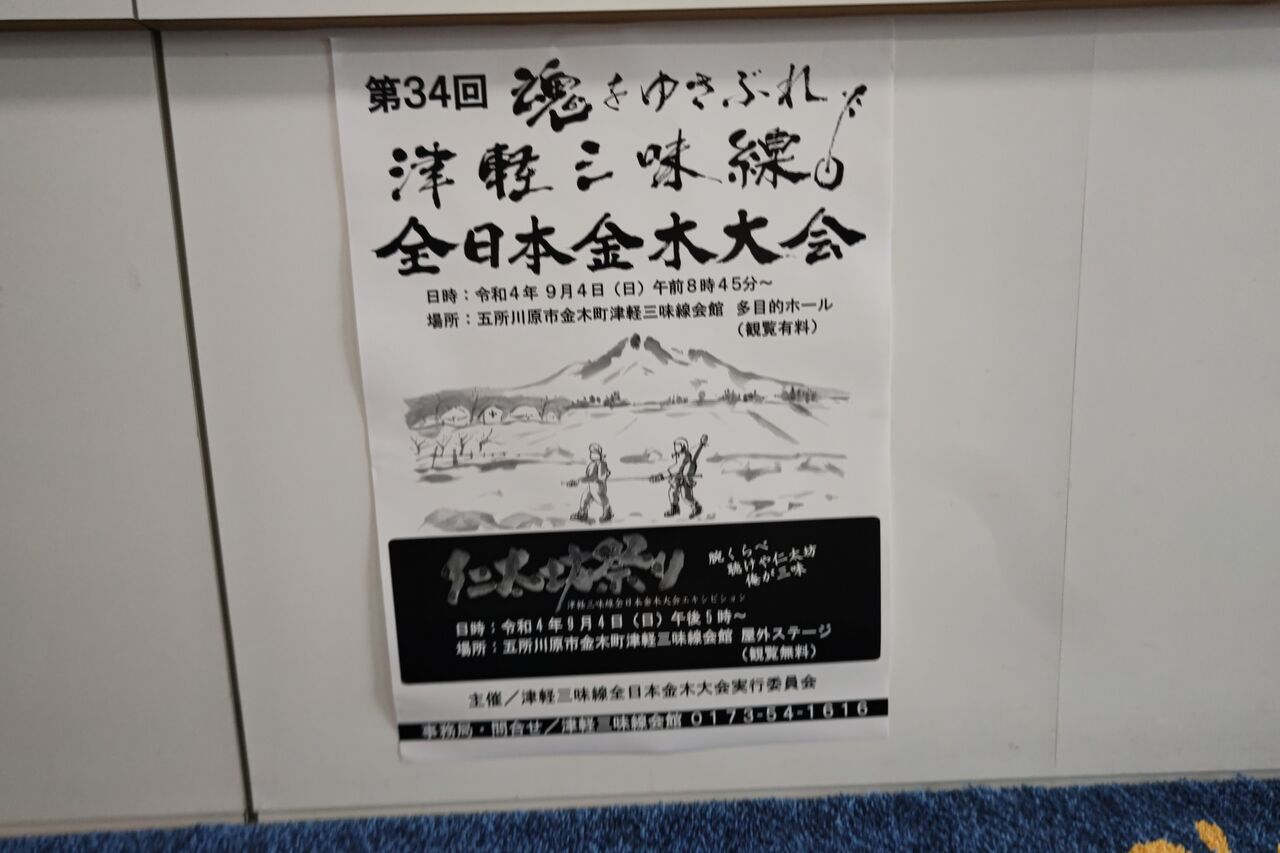 第34回 魂をゆさぶれ
津軽三味線
全日本金木大会
日時：令和4年 9月4日（日）午前8時45分～
場所：五所川原市金木町津軽三味線会館 多目的ホール
（観覧有料）
仁太坊祭り
腕くらべ
聴けや仁太坊
俺が三味
津軽三味線全日本金木大会エキシビション
日時：令和4年9月4日（日）午後5時～
場所：五所川原市金木町津軽三味線会館 屋外ステージ
（観覧無料）
主催／津軽三味線全日本金木大会実行委員会
事務局・問合せ／津軽三味線会館 0173-54-1616